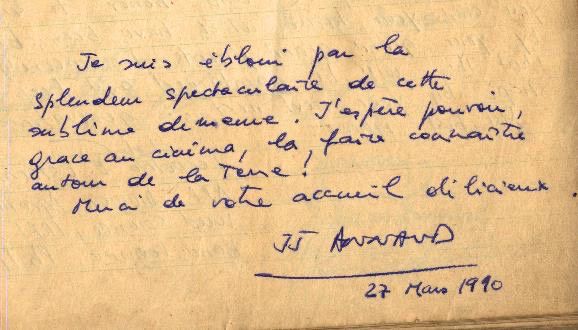 Je suis ébloui par la
splendeur spectaculaire de cette
sublime demeure. J'espère pouvoir,
grace au cinéma, la faire connaître
autour de la Terre!
Merci de votre accueil délicieux.
JJ ANNAUD
27 Mars 1990